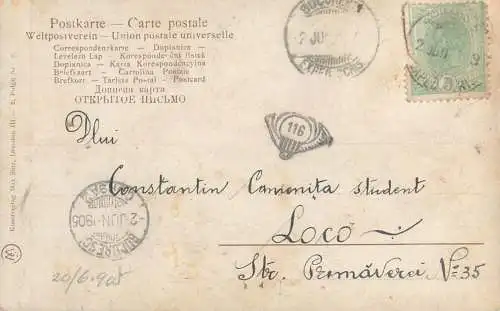 Postkarte — Carte postale
Weltpostverein — Union postale universelle
Correspondenzkarte — Dopisnica —
Levelezö Lap — Korespondenční lístek
Dopisnica — Karta Korespondencyjna
Briefkaart — Cartolina Postale
Brefkort — Tarjeta Postal — Postcard
Дописна карта
ОТКРЫТОЕ ПИСЬМО
BUCURESCI
2 JUN
5
116
Dlui
Constantin Camonița student
Loco
Str. Primăverei No 35
BUCURESCI
-2 JUN 1905
20/6.905
Kunstverlag Max